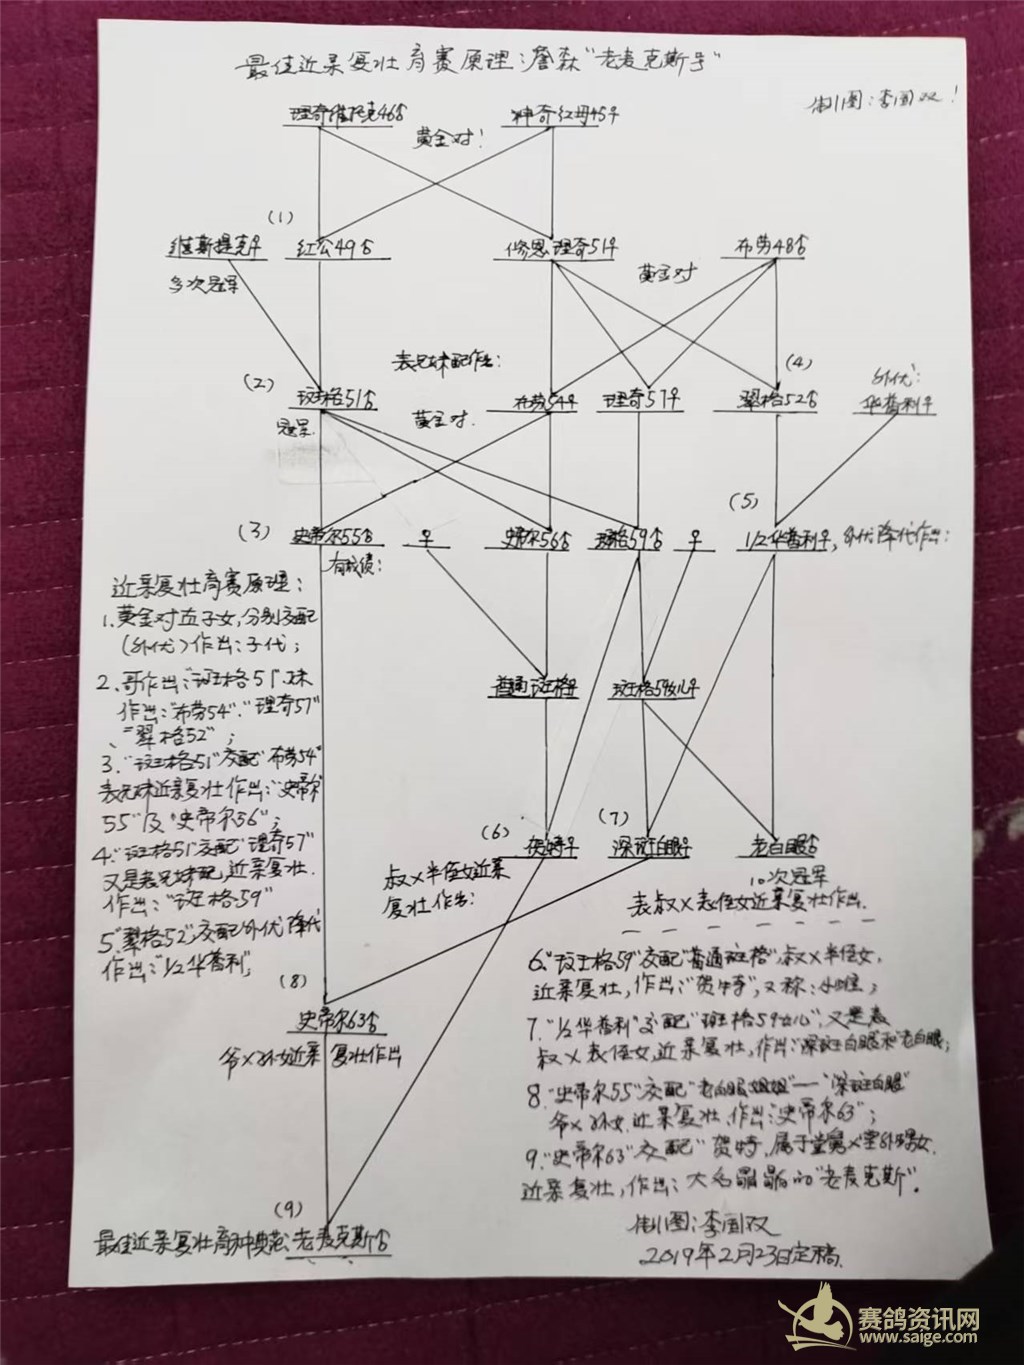 最佳近亲复壮育赛原理:詹森"老麦克斯号"
制图:李国双!
理奇维托克46♂
神奇红母45♀
黄金对!
(1)
维斯提克♀
红公49♂
修恩理奇51♀
布劳48♂
多次冠军
黄金对
表兄妹配作出:
(4)
(2)
斑格51♂
布劳54♀
理奇57♀
翠格52♂
外优:
华普利♀
冠军
黄金对.
(5)
(3)
史帝尔55♂
♀
史帝尔56♂
斑格59♂
♀
1/2华普利♀,外优降代作出:
有成绩:
近亲复壮育赛原理:
1.黄金对直子女,分别交配
(外优)作出:子代;
普通斑格♀
斑格59女儿♀
2、哥作出:"斑格51".妹
作出:"布劳54"."理奇57"
、"翠格52";
3."斑格51"交配"布劳54"
表兄妹近亲复壮作出:"史帝尔
55"及"史帝尔56";
4."斑格51"交配"理奇57"
又是表兄妹配,近亲复壮.
作出:"斑格59"
5."翠格52",交配外优降代
作出:"1/2华普利",
(6)
(7)
贺特♀
深斑白眼♀
老白眼♂
10次冠军
叔X半侄女近亲
复壮作出:
表叔X表侄女近亲复壮作出.
(8)
史帝尔63♂
爷X孙女近亲复壮作出
6."斑格59"交配"普通斑格",叔X半侄女,
近亲复壮,作出:"贺特",又称:
7."1/2华普利"交配"斑格59女儿",又是表
叔X表侄女,近亲复壮,作出:"深斑白眼"和"老白眼;
8."史帝尔55"交配"老白眼姐姐"—"深斑白眼"
爷X孙女.近亲复壮.作出:"史帝尔63";
9."史帝尔63"交配"贺特,属于堂舅X堂外甥女.
近亲复壮,作出:大名鼎鼎的"老麦克斯".
(9)
最佳近亲复壮育种典范:老麦克斯♂
制图:李国双
2019年2月23日定稿.
赛鸽资讯网
www.saige.com